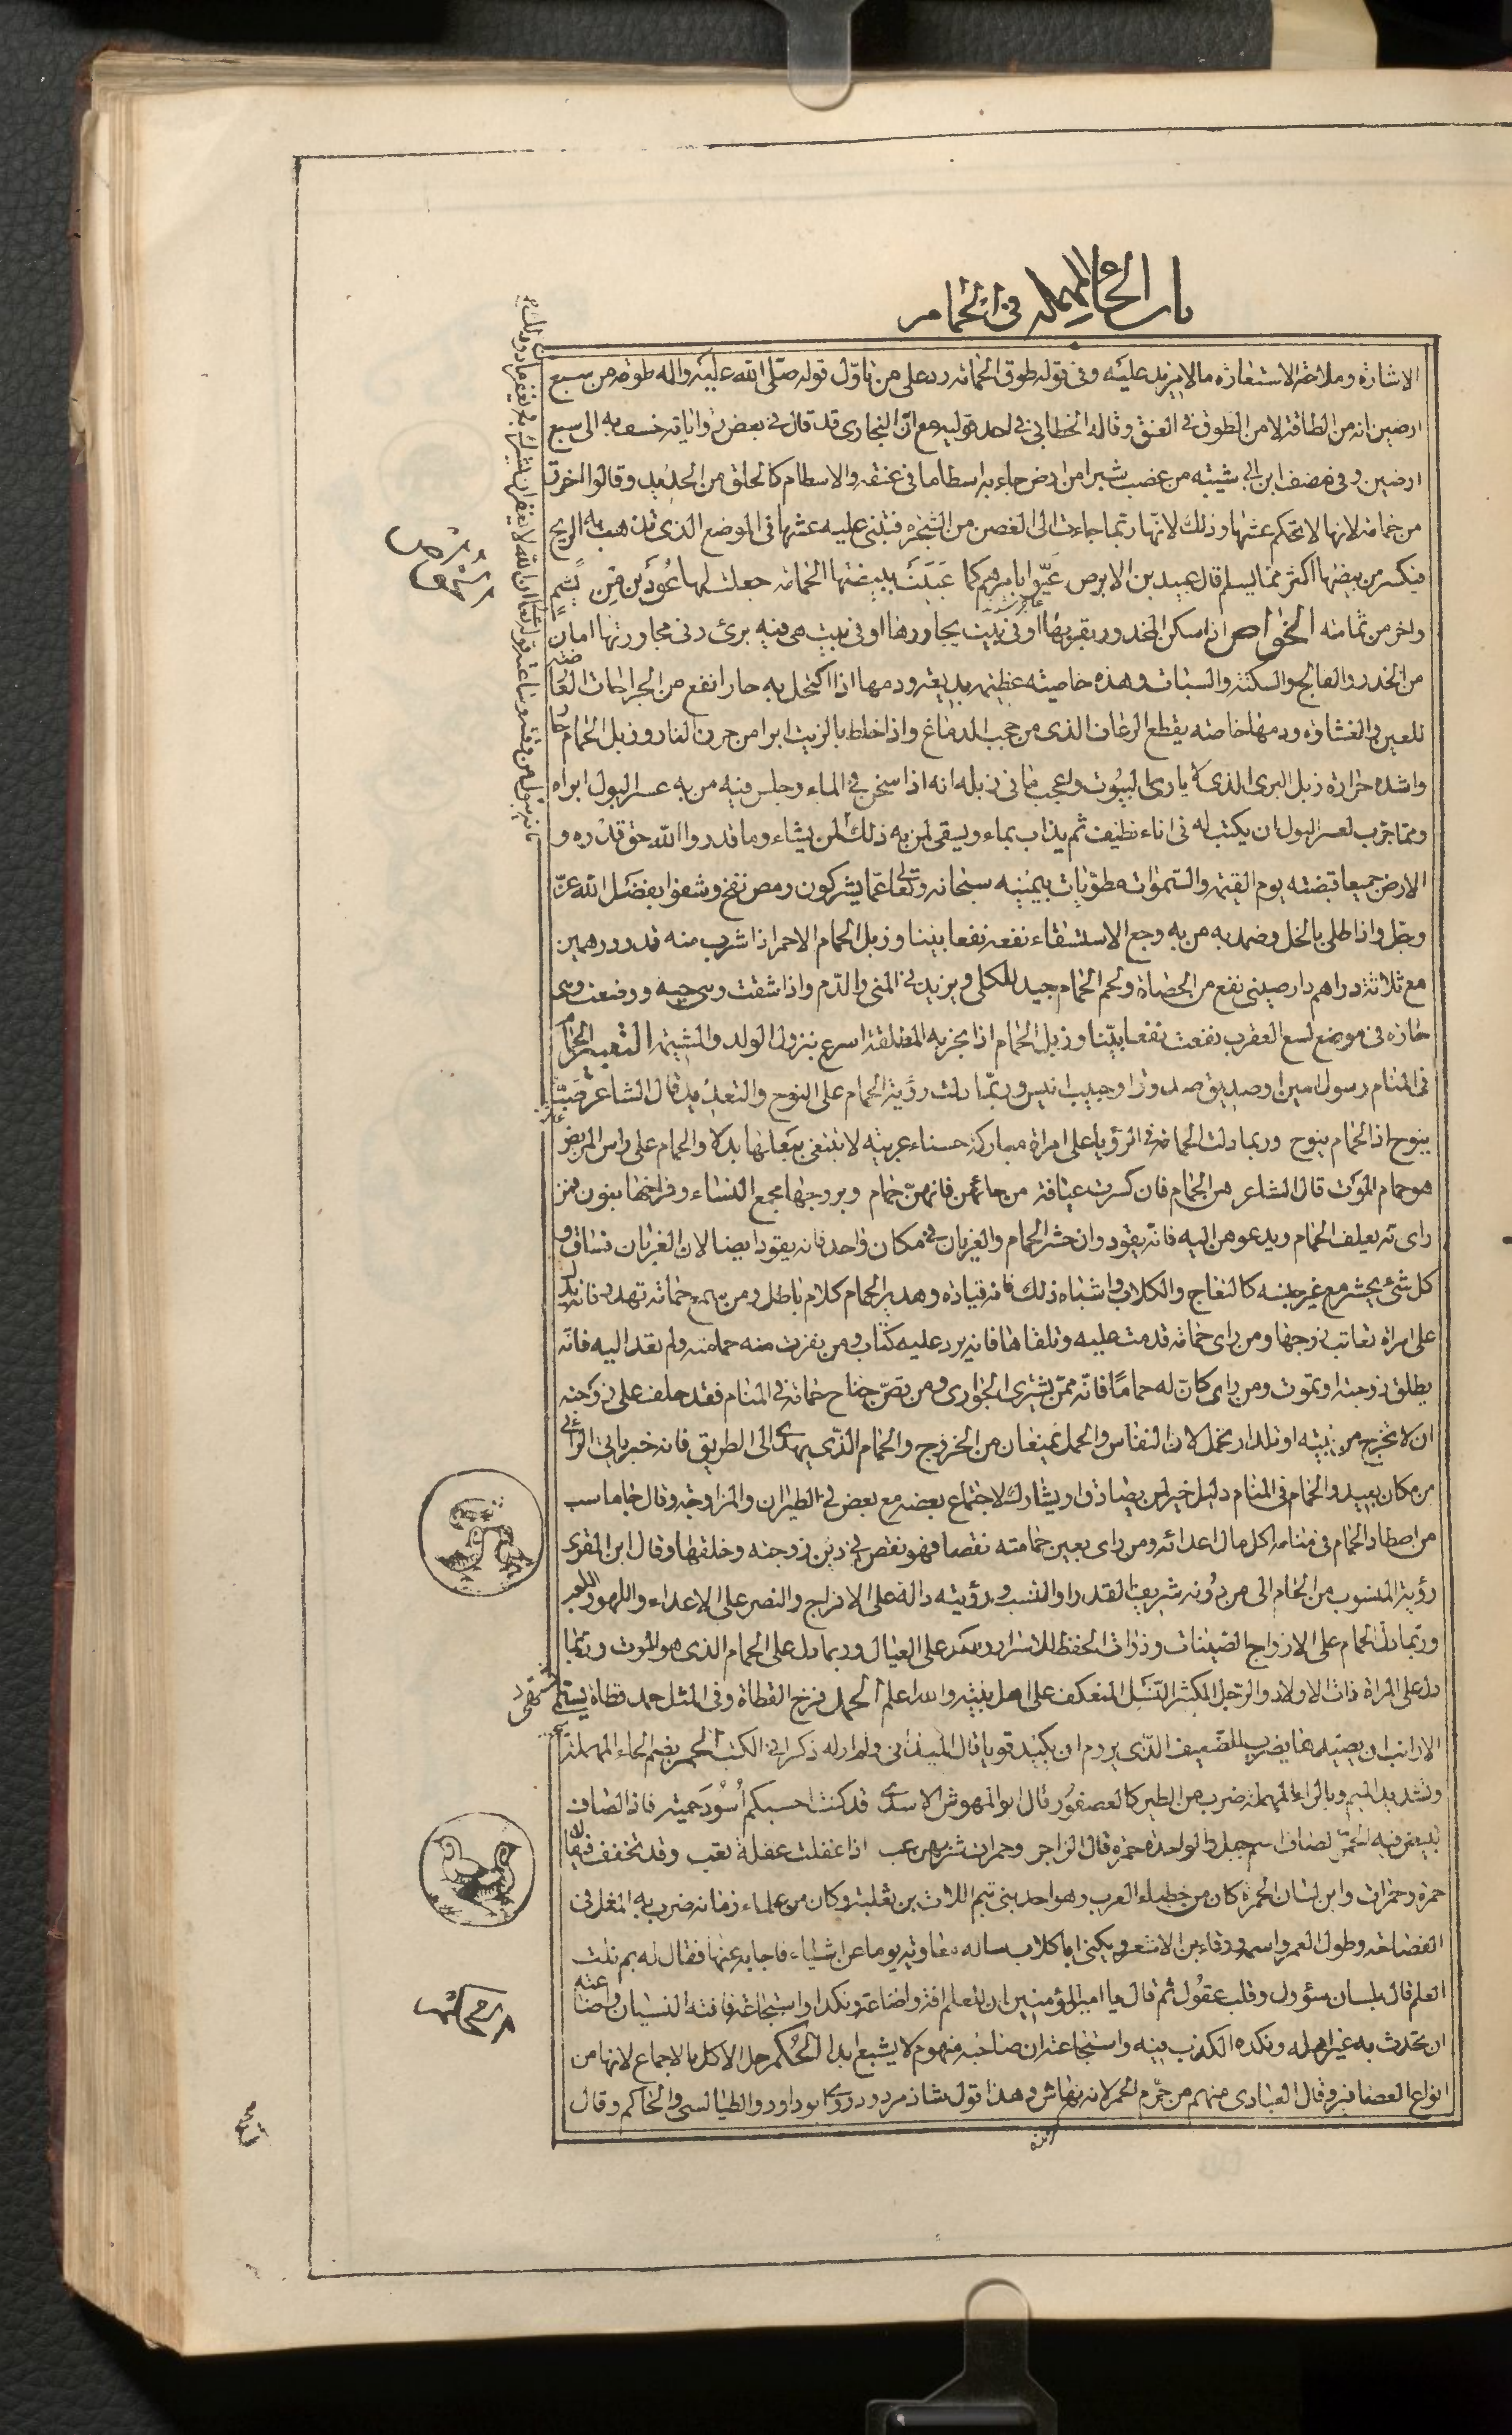 باب الحاء المهملة في الحمام
الاشارة وملاحة الاستعارة مالا مزيد عليه وفي قوله طوق الحمامه رد على من تاوّل قوله صلى الله عليه واله طوقه من سبع
ارضين انه من الطاقة لا من الطوق في العنق وقاله الخطابي في احد قوليه مع انّ البخارى قد قال في بعض رواياته خسف به الى سبع
ارضين وفي مصنف ابن ابي شيبة من غصب شبرا من ارض جاء به اسطاما في عنقه والاسطام كالحلق من الحديد وقالوا اخرق
من حمامة لانها لا تحكم عشها وذلك لانّها ربما جاءت الى الغصن من الشجرة فتبنى عليه عشها في الموضع الذى تذهب به الريح
فينكسر من بيضها اكثر مما يسلم قال عبيد بن الابرص عيّوا بامرهم كما عيّت ببيضتها الحمامه جعلت لها عودين من نشم
واخر من ثمامه الخواص اذا سكن المخدور بقربها او في بيت يجاورها او في بيت هي فيه برئ وفي مجاورتها امان
من الخدر والفالج والسكتة والسبات وهذه خاصيّة عظيمة بديعة ودمها اذا اكتحل به حارا نفع من الجراحات العارضة
للعين والغشاوه ودمها خاصة يقطع الرعاف الذى من حجب الدماغ واذا خلط بالزيت ابرا من حرق النار وزبل الحمام حار
واشده حرارة زبل البرى الذى لا ياوى البيوت واعجب ما في زبله انه اذا سخن في الماء وجلس فيه من به عسر البول ابراه
ومما جرّب لعسر البول ان يكتب له في اناء نظيف ثم يذاب بماء ويسقى لمن به ذلك لمن يشاء وما قدروا الله حق قدره و
الارض جميعا قبضته يوم القيمة والسموات مطويات بيمينه سبحانه وتعالى عمّا يشركون رمص نفخ وشفوا بفضل الله عزّ
وجل واذا طلى بالخل وضمد به من به وجع الاستسقاء نفعه نفعا بينا وزبل الحمام الاحمر اذا شرب منه قدر درهمين
مع ثلاثة دراهم دارصينى نفع من الحصاة ولحم الحمام جيد للكلى ويزيد في المنى والدّم واذا شقت وهي حيه ووضعت وهي
حارة في موضع لسع العقرب نفعت نفعا بيّنا وزبل الحمام اذا بخر به المطلقة اسرع بنزول الولد والمشيمة التعبير الحمام
في المنام رسول امين او صديق صدوق او حبيب انيس وربّما دلت رؤية الحمام على النوح والتعديد قال الشاعر صبّ
ينوح اذا الحمام ينوح وربما دلت الحمامة في الرؤيا على امراة مباركة حسناء عربيه لا تبتغى ببعلها بدلا والحمام على راس المريض
هو حمام الموت قال الشاعر هن الحمام فان كسرت عيافة من حائهن فانهنّ حمام وبروجها مجمع النساء وفراخها بنون فمن
راى نه يعلف الحمام ويدعوهن اليه فانّه يقود وان حشر الحمام والغربان في مكان واحد فانه يقود ايضا لان الغربان فساق و
كل شئ يحشر مع غير جنسه كالنعاج والكلاب واشباه ذلك فانه قيادة وهدير الحمام كلام باطل ومن سمع حمامة تهدر فانه يدل
على امراة تعاتب زوجها ومن راى حمامة قدمت عليه وتلقاها فانه يرد عليه كتاب ومن نفرت منه حمامته ولم تعد اليه فانّه
يطلق زوجته او تموت ومن راى كان له حماما فانه ممّن يشترى الجوارى ومن قصّ جناح حمامة في المنام فقد حلف على زوجته
ان لا تخرج من بيته او تلد او تحمل لان النفاس والحمل يمنعان من الخروج والحمام الذّى يهدى الى الطريق فانه خبر ياتى الرائي
من مكان بعيد والحمام في المنام دليل خير لمن يصادق او يشارك لاجتماع بعضه مع بعض في الطيران والمزاوجه وقال جاماسب
من اصطاد الحمام في منامه اكل مال اعدائه ومن راى بعين حمامته نقصا فهو نقص في دين زوجته وخلقها وقال ابن المقرى
رؤية المنسوب من الحمام الى من دونه شريف القدر او النسب ورؤيته دالة على الافراح والنصر على الاعداء واللهو واللعب
وربّما دل الحمام على الازواج الصينات وذوات الحفظ للاسرار والكد على العيال وربما دل على الحمام الذى هو الموت وربّما
دل على المراة ذات الاولاد والرجل المكثر النّسل المنعكف على اهل بيته والله اعلم الحمد فرخ القطاة وفي المثل حمد قطاة يستمى
الارانب ان يصيدها يضرب للضعيف الذّى يروم ان يكيد قويا قال الميدانى ولم ار له ذكرا في الكتب الحمر بضم الحاء المهملة
وتشديد الميم وبالراء المهملة ضرب من الطير كالعصفور قال ابو المهوش الاسدى قد كنت احسبكم اسود خمية فاذا لصاف
تبيض فيه الحمّر لصاف اسم جبل والواحدة حمرة قال الراجز وحمرات شربهن عب اذا غفلت غفلة تعب وقد تخفف فيقال
حمرة وحمرات وابن لسان الحمرة كان من خطباء العرب وهو احد بنى تيم اللات بن ثعلبة وكان من علماء زمانه ضرب به المثل في
الفصاحة وطول العمر واسمه ورقاء بن الاشعر ويكنى ابا كلاب ساله معاوية يوما عن اشياء فاجابه عنها فقال له بم نلت
العلم قال بلسان سؤول وقلب عقول ثم قال يا امير المؤمنين ان للعلم افة واضاعة ونكدا واستجاعة فافته النسيان واضاعته
ان تحدث به غير اهله ونكده الكذب فيه واستجاعته ان صاحبه منهوم لا يشبع ابدا الحكم حل الاكل بالاجماع لانها من
انواع العصافير وقال العبادى منهم من حرّم الحمر لانه نهاش وهذا قول شاذ مردود روى ابو داود والطيالسى والحاكم وقال